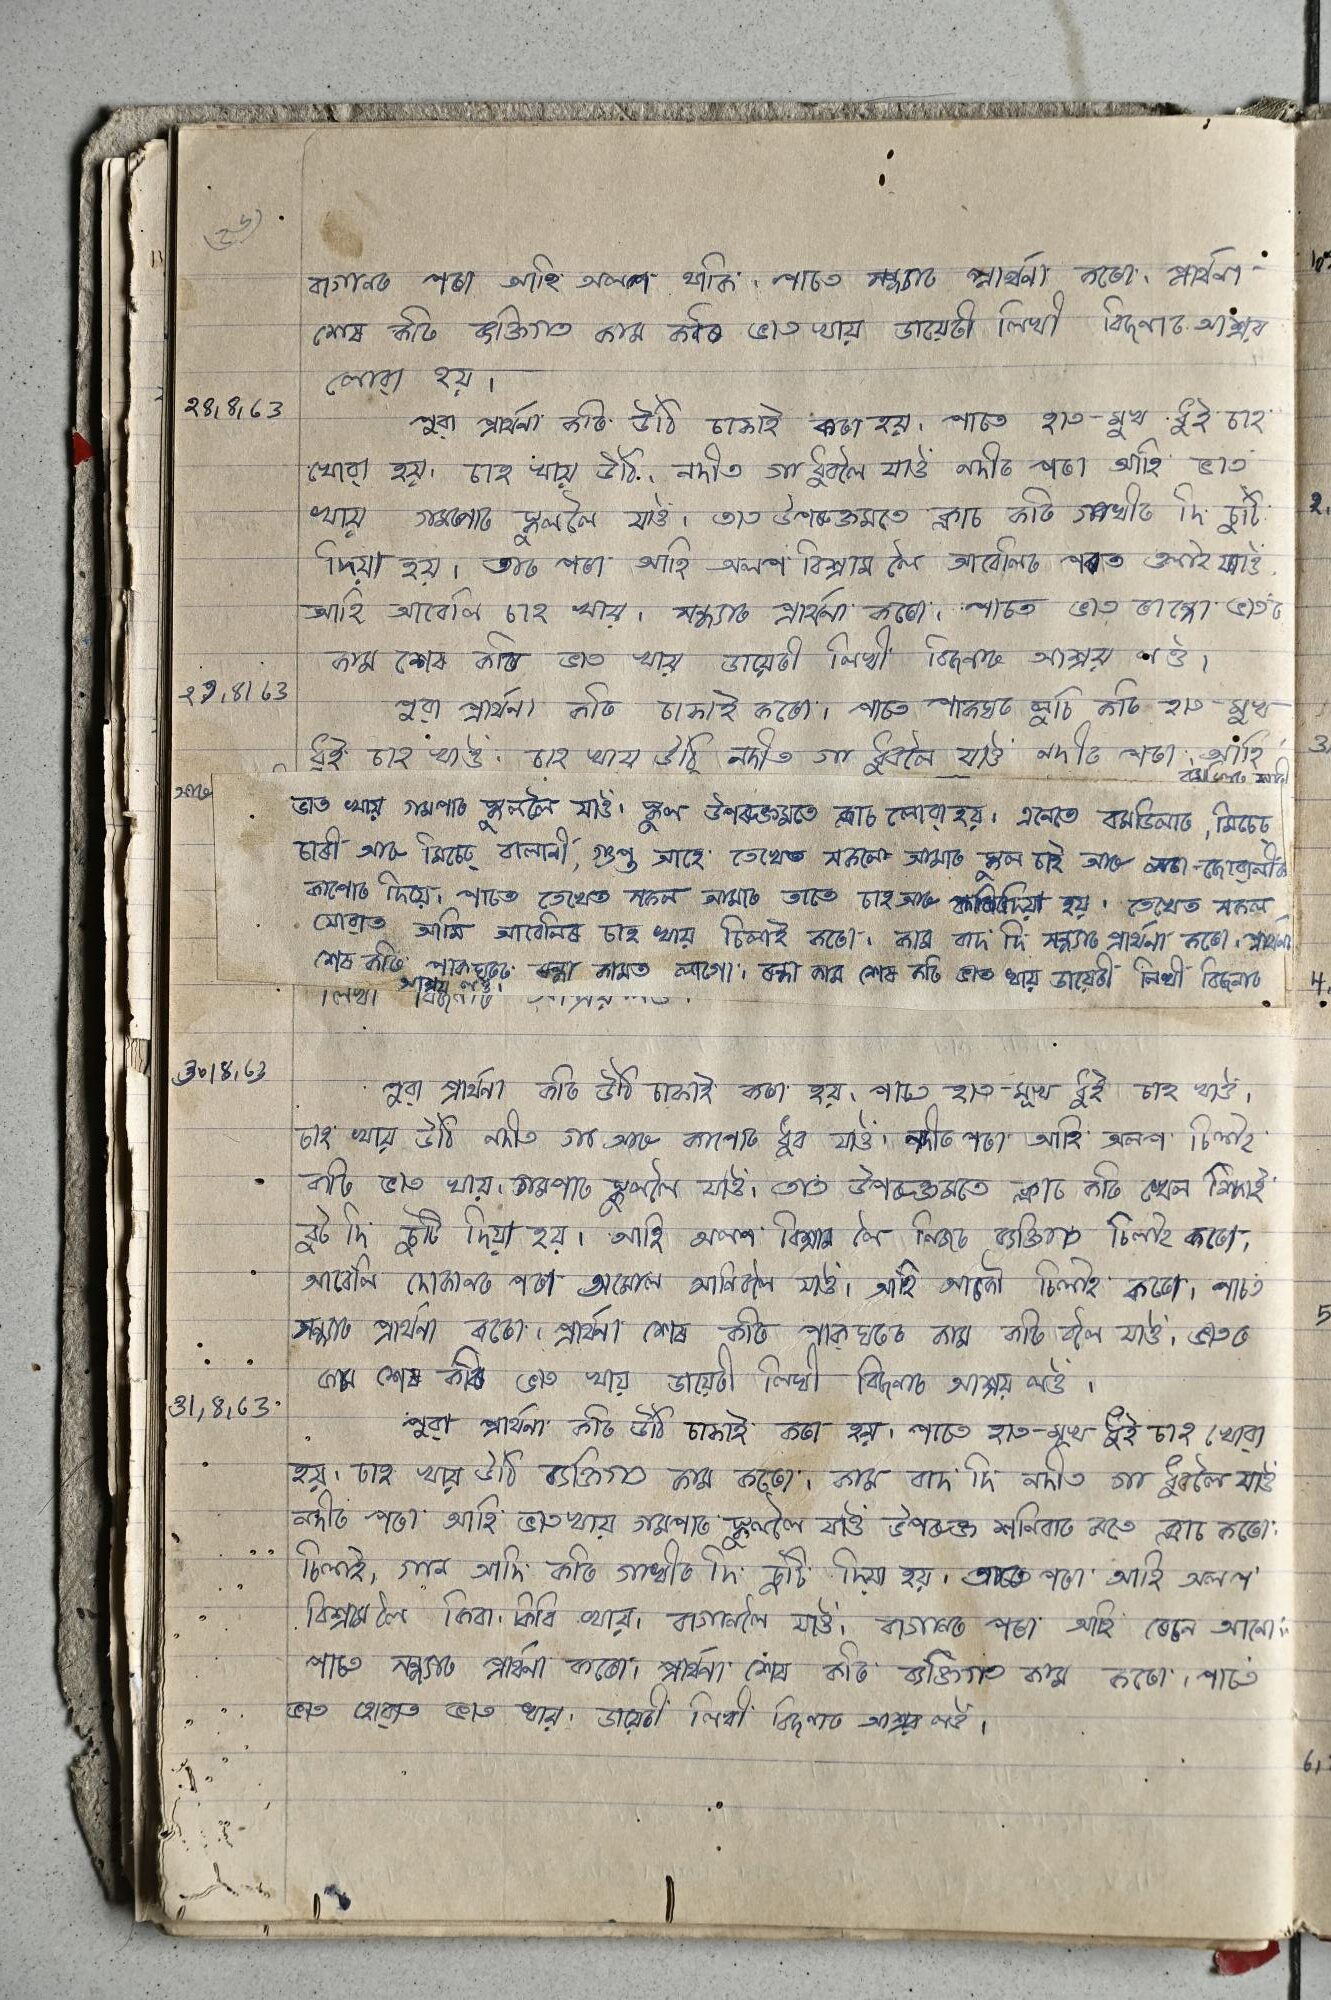 (২৬)
বাগানৰ পৰা আহি অলপ থাকি, পাচত সন্ধ্যাত প্ৰাৰ্থনা কৰো, প্ৰাৰ্থনা
শেষ কৰি ব্যক্তিগত কাম কৰি ভাত খায় ডায়েৰী লিখী বিচনাত আশ্ৰয়
লোৱা হয়।
২৪,৪,63
পুৱা প্ৰাৰ্থনা কৰি উঠি চাফাই কৰা হয়, পাচত হাত-মুখ ধুই চাহ
খোৱা হয়, চাহ খায় উঠি, নদীত গা ধুবলৈ যাওঁ নদীৰ পৰা আহি ভাত
খায় গমপাত স্কুললৈ যাওঁ, তাত উপৰুক্তমতে ক্লাচ কৰি গাখীৰ দি চুটি
দিয়া হয়। তাৰ পৰা আহি অলপ বিশ্ৰাম লৈ আবেলিত পৰাত ওলাই যাওঁ,
আহি আবেলি চাহ খায়, সন্ধ্যাত প্ৰাৰ্থনা কৰো, পাচত ভাত ভাতৰ
কাম শেষ কৰি ভাত খায় ডায়েৰী লিখী বিচনাত আশ্ৰয় লওঁ,
২9,8163
পুৱা প্ৰাৰ্থনা কৰি চাফাই কৰো, পাচত পাকঘৰ সুচি কৰি হাত-মুখ
ধুই চাহ খাওঁ, চাহ খায় উঠি নদীত গা ধুবলৈ যাওঁ নদীৰ পৰা আহি
ভাত খায় গমপাত স্কুললৈ যাওঁ, স্কুল উপৰুক্তমতে ক্লাচ লোৱা হয়, এনেতে বমডিলাৰ, মিচেচ্
চাৰী আৰু মিচেচ্ বালানী, গুপ্ত আহে তেখেত সকলে আমাৰ স্কুল চাই আৰু
কাপোৰ দিয়ে, পাচত তেখেত সকল আমাৰ তাতে চাহ আৰু দিয়া হয়, তেখেত সকল
যোৱাত আমি আবেলিৰ চাহ খায় চিলাই কৰো, কাম বাদ দি সন্ধ্যাত প্ৰাৰ্থনা কৰো, প্ৰাৰ্থনা
শেষ কৰি পাকঘৰত ৰন্ধা কামত লাগো, ৰন্ধা কাম শেষ কৰি ভাত খায় ডায়েৰী লিখী বিচনাত
আশ্ৰয় লওঁ,
লিখী বিচনাত আশ্ৰয় লওঁ,
3০18,63
পুৱা প্ৰাৰ্থনা কৰি উঠি চাফাই কৰা হয়, পাচত হাত-মূখ ধুই চাহ খাওঁ,
চাহ খায় উঠি নদীত গা আৰু কাপোৰ ধুব যাওঁ, নদীৰ পৰা আহি অলপ চিলাই
কৰি ভাত খায়, গমপাত স্কুললৈ যাওঁ, তাত উপৰুক্তমতে ক্লাচ কৰি খেল শিকাই
বুট দি চুটি দিয়া হয়। আহি অলপ বিশ্ৰাম লৈ নিজৰ ব্যক্তিগত চিলাই কৰো,
আবেলি দোকানৰ পৰা আনিবলৈ যাওঁ, আহি আকৌ চিলাই কৰো, পাচত
সন্ধ্যাত প্ৰাৰ্থনা কৰো, প্ৰাৰ্থনা শেষ কৰি পাকঘৰত কাম কৰিবলৈ যাওঁ, ভাতৰ
কাম শেষ কৰি ভাত খায় ডায়েৰী লিখী বিচনাত আশ্ৰয় লওঁ।
31,8,63
পুৱা প্ৰাৰ্থনা কৰি উঠি চাফাই কৰা হয়, পাচত হাত-মূখ ধুই চাহ খোৱা
হয়, চাহ খায় উঠি ব্যক্তিগত কাম কৰো, কাম বাদ দি নদীত গা ধুবলৈ যাওঁ
নদীৰ পৰা আহি ভাত খায় গমপাত স্কুললৈ যাওঁ উপৰুক্ত শনিবাৰ মতে ক্লাচ কৰো,
চিলাই, গান আদি কৰি গাখীৰ দি চুটি দিয়া হয়, তাৰ পৰা আহি অলপ
বিশ্ৰাম লৈ খায়, বাগানলৈ যাওঁ, বাগানৰ পৰা আহি আনো,
পাচত সন্ধ্যাত প্ৰাৰ্থনা কৰো, প্ৰাৰ্থনা শেষ কৰি ব্যক্তিগত কাম কৰো, পাচত
ভাত হোৱাত ভাত খায়, ডায়েৰী লিখী বিচনাত আশ্ৰয় লওঁ,